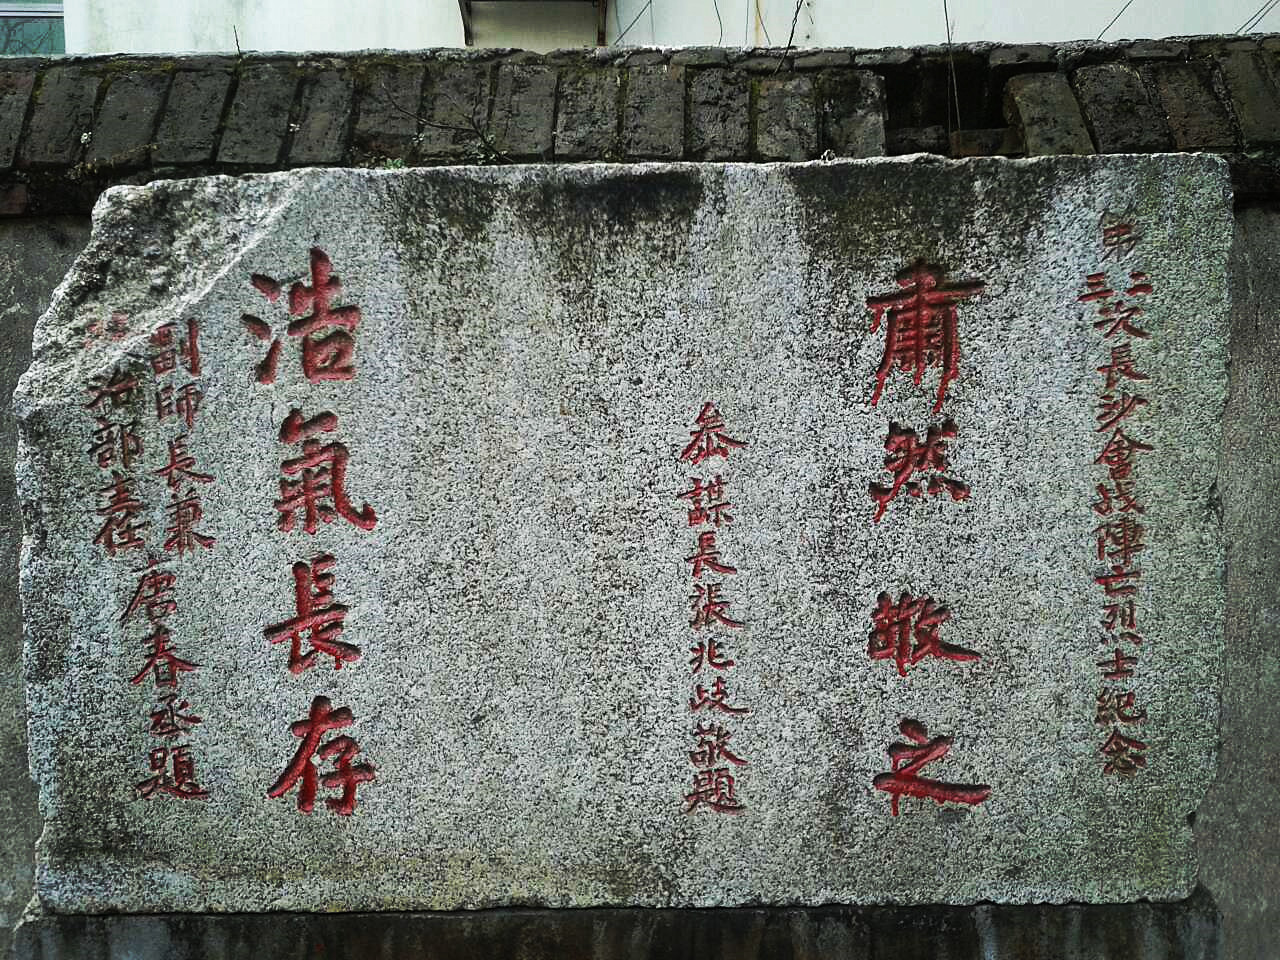 第二三次長沙會战陣亡烈士紀念
肅然敬之
叅謀長張兆歧敬題
浩氣長存
副師長兼
治部主任
唐春丞題